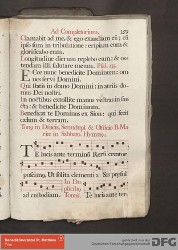 Ad Completorium. 159
Clamabit ad me, & ego exaudiam eũ: cũ
ipso sum in tribulatione: eripiam eum &
glorificabo eum.
Longitudine dierum replebo eum: & os-
tendam illi salutare meum. Psal. 133.
ECce nunc benedicite Dominum: om-
nes servi Domini.
Qui statis in domo Domini: in atriis do-
mus Dei nostri.
In noctibus extollite manus vestras in san-
cta: & benedicite Dominum.
Benedicat te Dominus ex Sion: qui fecit
cælum & terram.
in Officio B. Ma-
riæ in Sabbato. Hymnus.
TE lucis ante terminũ Rerũ creator
poscimus, Ut
ad custodiam. Te lucis ante ter-
DFG